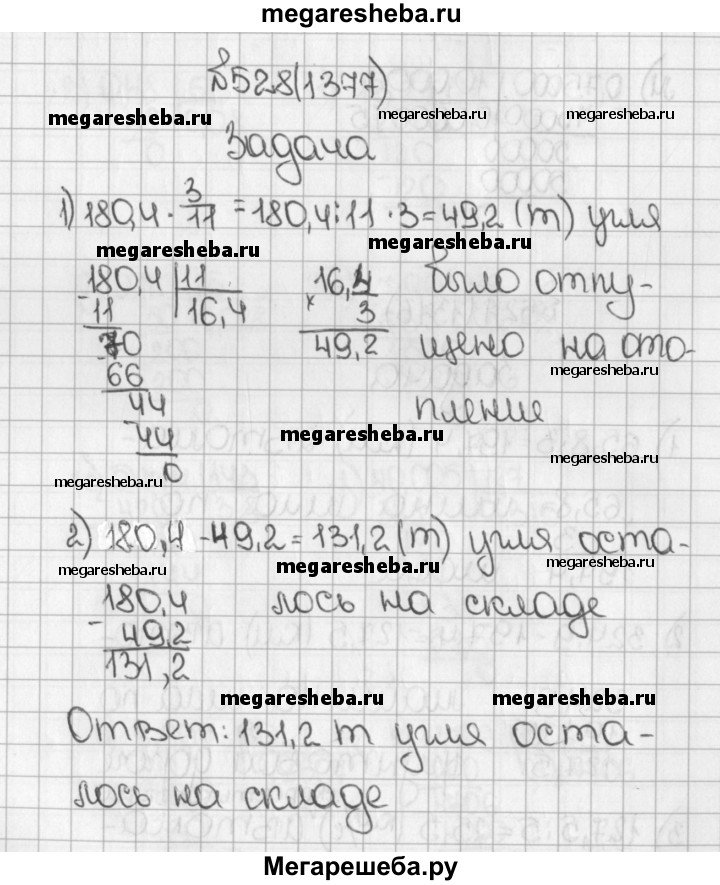 megaresheba.ru
№528(1377)
megaresheba.ru megaresheba.ru megaresheba.ru
Задача
1) 180,4 · 3/11 = 180,4:11 · 3 = 49,2 (т) угля
megaresheba.ru megaresheba.ru
180,4 | 11
- 11
16,4
70
66
44
- 44
0
16,4
× 3
49,2
было отпу-
щено на ото-
megaresheba.ru
пление
megaresheba.ru
megaresheba.ru megaresheba.ru
2) 180,4 - 49,2 = 131,2 (т) угля оста-
megaresheba.ru megaresheba.ru megaresheba.ru
лось на складе
180,4
- 49,2
131,2
megaresheba.ru megaresheba.ru
Ответ: 131,2 т угля оста-
лось на складе
Мегарешеба.ру